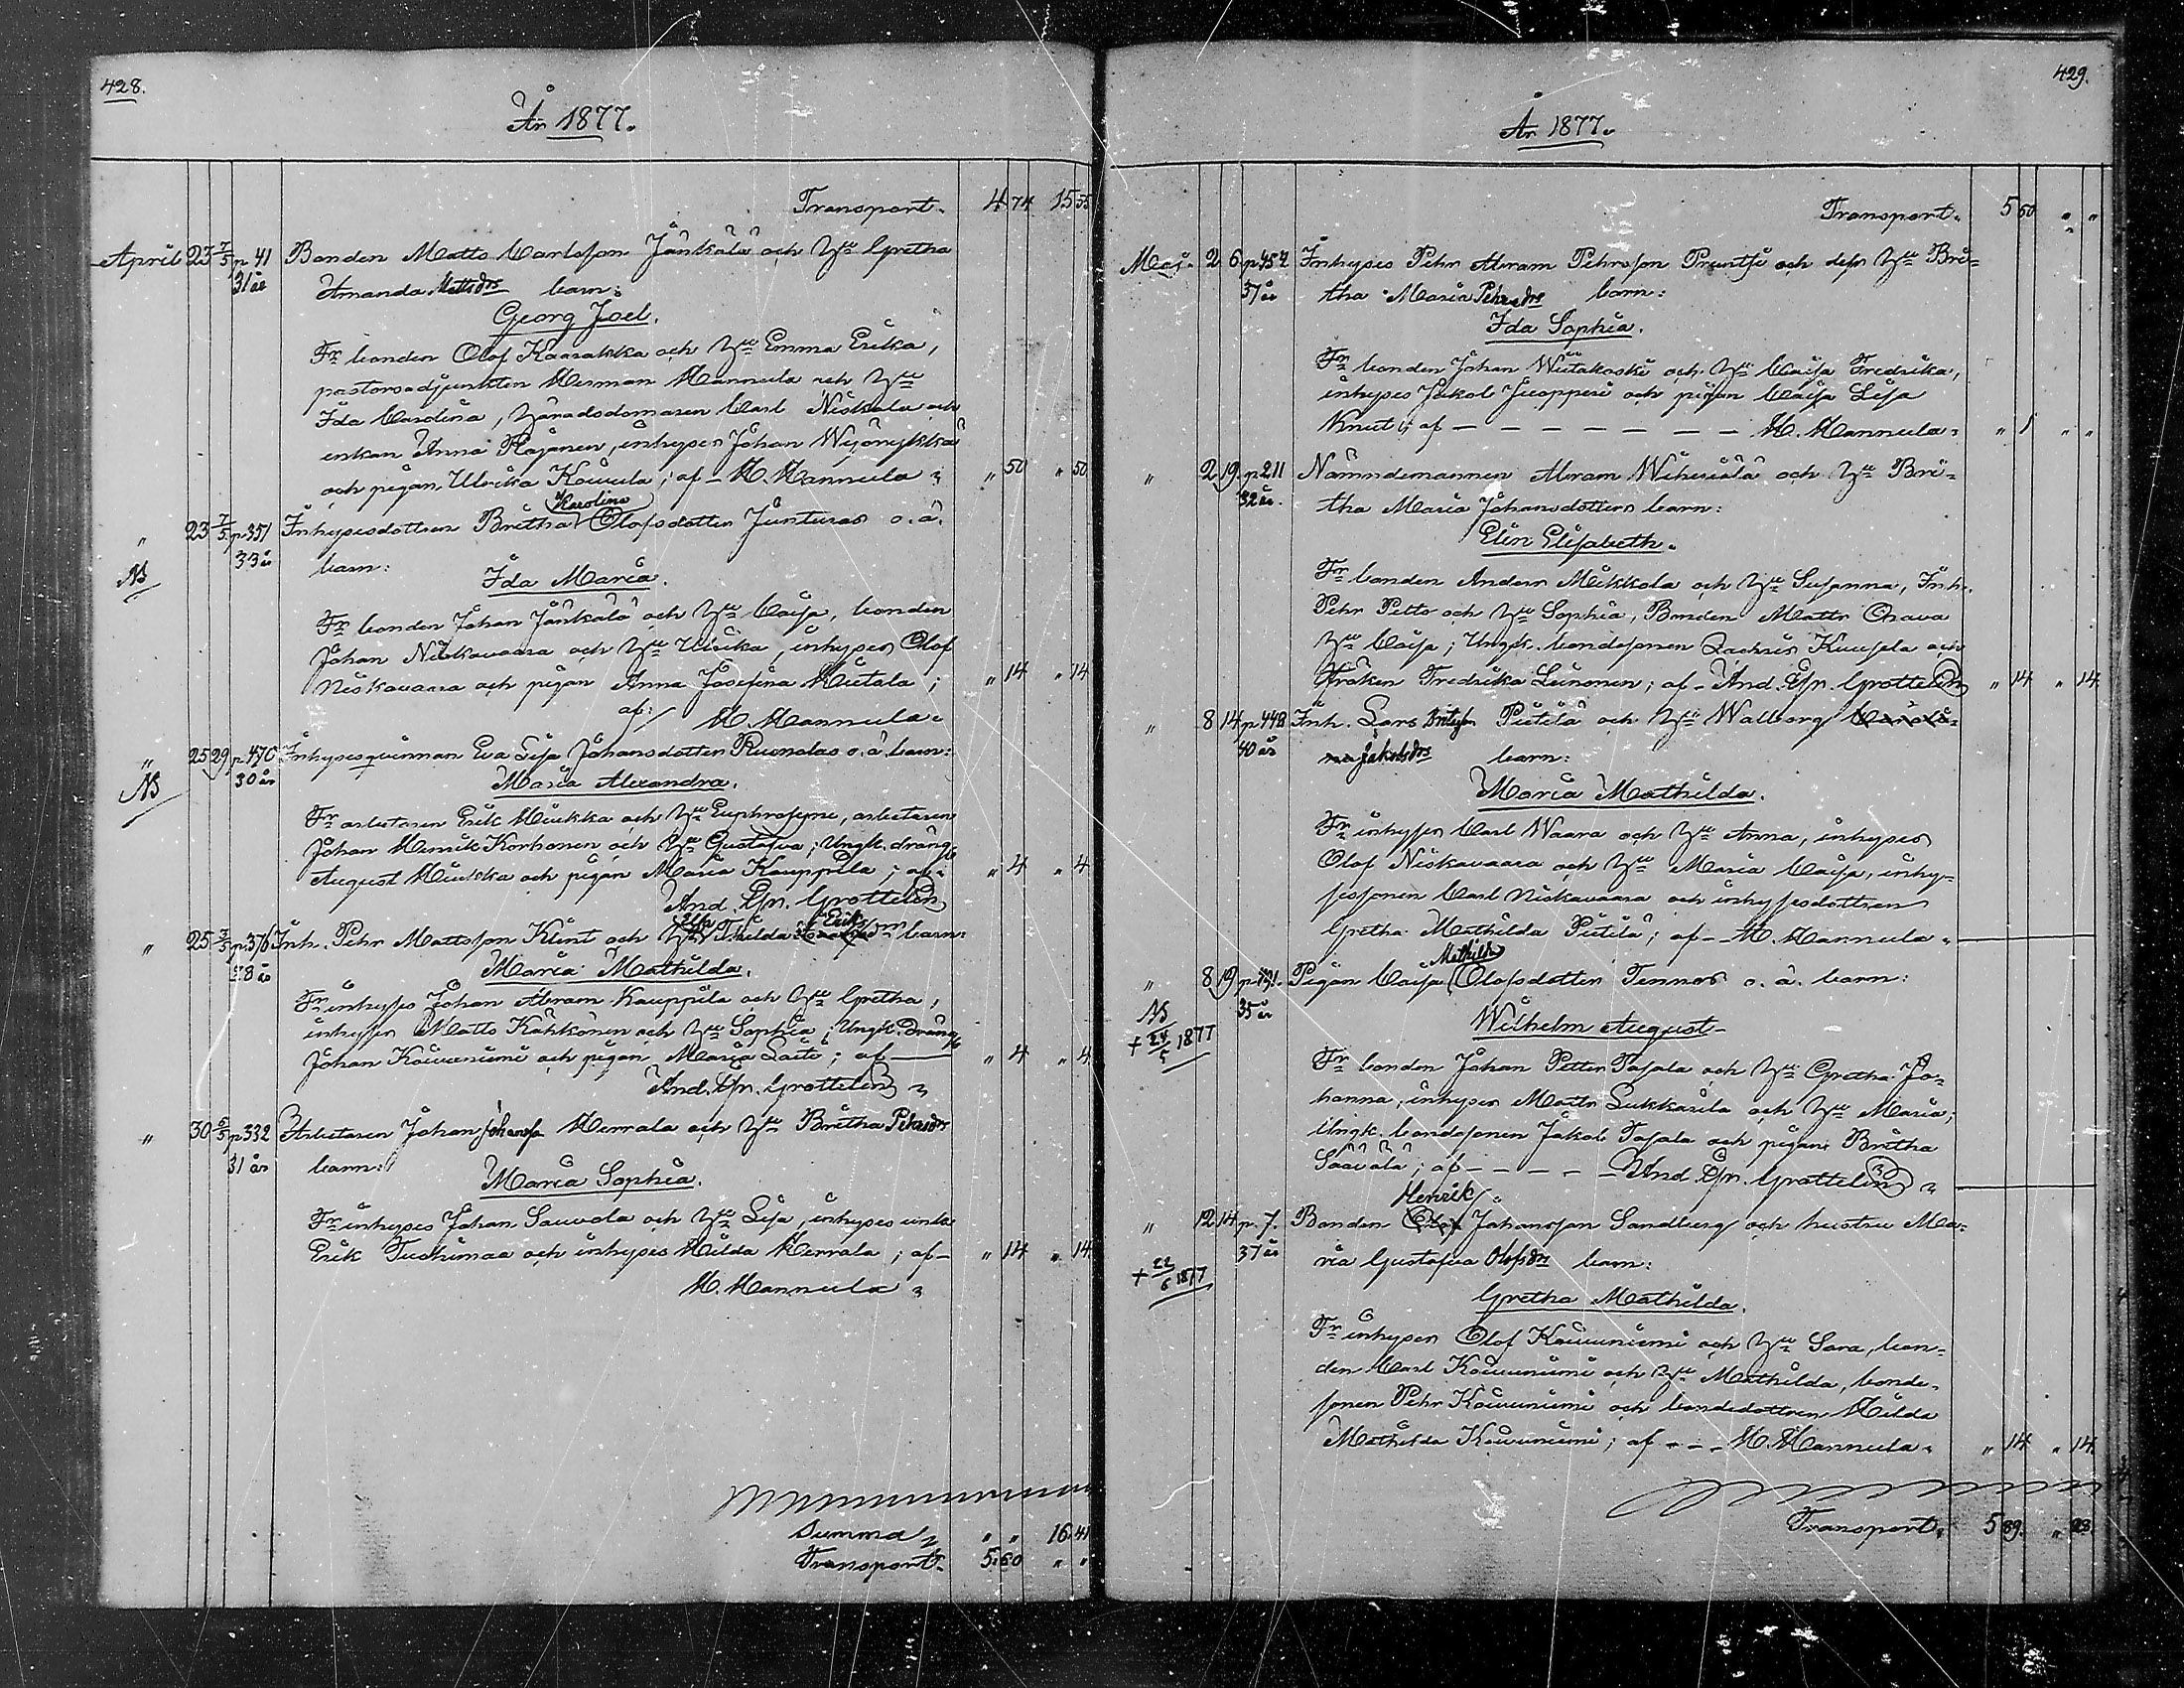 428.
År 1877.
Transport. 4 74 15 55
April 23 7/5 p 41 Bonden Matts Carlsson Jänkälä och H:u Gretha
31 år Amanda Mattsdr barn:
Georg Joel.
Fr bonden Olof Kaarakka och H:u Emma Erika,
pastorsadjunkten Herman Mannula och H:u
Ida Carolina, häradsdomaren Carl Niskala och
enkan Anna Pajanen, inhyses Johan
och pigan Ulrika Kouvula; af - H. Mannula „ 50 „ 50
Karolina
„ 23 7/5 p. 351 Inhysesdottren Bretha Olofsdotter Junturas o. ä.
NB 33 år barn: Ida Maria.
Fr bonden Johan Jänkälä och H:u Caisa, bonden
Johan Niskavaara och H:u Ulrika, inhyses Olof
Niskavaara och pigan Anna Josefina Hietala; „ 14 „ 14
af: H. Mannula
„ 25 29 p 470 Inhysesqvinnan Eva Lisa Johansdotter Ruonalas o. ä. barn:
NB 30 år Maria Alexandra.
Fr arbetaren Erik Miukka och H:u Euphrosyne, arbetaren
Johan Henrik Korhonen och H:u Gustafva; Ungk. dräng
August Miukka och pigan Maria Kauppila; af „ 4 „ 4
And. Joh. Grottelin
Eriks
„ 25 3/5 p. 376 Inh. Pehr Mattsson Klint och H:u Thilda dr barn:
38 år Maria Mathilda.
Fr inhyses Johan Abram Kauppila och H:u Gretha,
inhyses Matts Kähkönen och H:u Sophia; Ungk. dräng
Johan Kouvuniemi och pigan Maria Laiti; af „ 4 „ 4
And. Joh. Grottelin
„ 30 6/5 p 332 Arbetaren Johan Johanss Herrala och H:u Bretha Pehrsdr
31 år barn:
Maria Sophia.
Fr inhyses Johan Sauvola och H:u Lisa, inhyses
Erik Tuohimaa och inhyses Hilda Herrala; af „ 14 „ 14
H. Mannula
Summa „ „ 16 41
Transport. 5 60 „ „
429.
År 1877.
Transport. 5 60 „ „
Maj. 2 6 p 457 Inhyses Pehr Abram Pehrsson Pruntsi och dess H:u Bre-
37 år tha Maria Pehrsdr barn:
Ida Sophia.
Fr bonden Johan Wiitakoski och H:u Caisa Fredrika,
inhyses Jakob Juopperi och pigan Caisa Lisa
Knuti; af - - - - - - - H. Mannula „ 1 „ „
„ 2 19 p. 211 Nämndemannen Abram Wiheriälä och H:u Bre-
32 år. tha Maria Johansdotters barn:
Elin Elisabeth.
Fr bonden Anders Mikkola och H:u Susanna, Inh.
Pehr Petto och H:u Sophia, Bonden Matts Orava
H:u Caisa; Ungk. bondesonen Zachris Kuusela och
Fröken Fredrika Leinonen; af - And. Joh. Grottelin „ 14 „ 14
„ 8 14 p 448 Inh. Lars Pietilä och H:u Walborg Carola-
40 år na Jakobsdr barn:
Maria Mathilda.
Fr inhyses Carl Waara och H:u Anna, inhyses
Olof Niskavaara och H:u Maria Caisa, inhy-
sessonen Carl Niskavaara och inhysesdottren
Gretha Mathilda Pietilä; af - H. Mannula
Mathilda
„ 8 19 Pigan Caisa Olofsdotter Tennos o. ä. barn:
NB 35 år
+ 24/5 1877 Wilhelm August
Fr bonden Johan Petter Tasala och H:u Gretha Jo-
hanna, inhyses Matts Lukkarila och H:u Maria;
Ungk. bondesonen Jakob Tasala och pigan Bretha
Säävälä; af - - - - And. Joh. Grottelin
Henrik
„ 12 14 p. 7. Bonden Olof Johansson Sandberg och hustru Ma-
37 år ria Gustafva Olofsdr barn:
+ 22/6 1877
Gretha Mathilda.
Fr inhyses Olof Kouvuniemi och H:u Sara, bon-
den Carl Kouvuniemi och H:u Mathilda, bonde-
sonen Pehr Kouvuniemi och bondedottren Hilda
Mathilda Kouvuniemi; af - - - H. Mannula „ 14 „ 14
Transport. 5 89. „ 28.